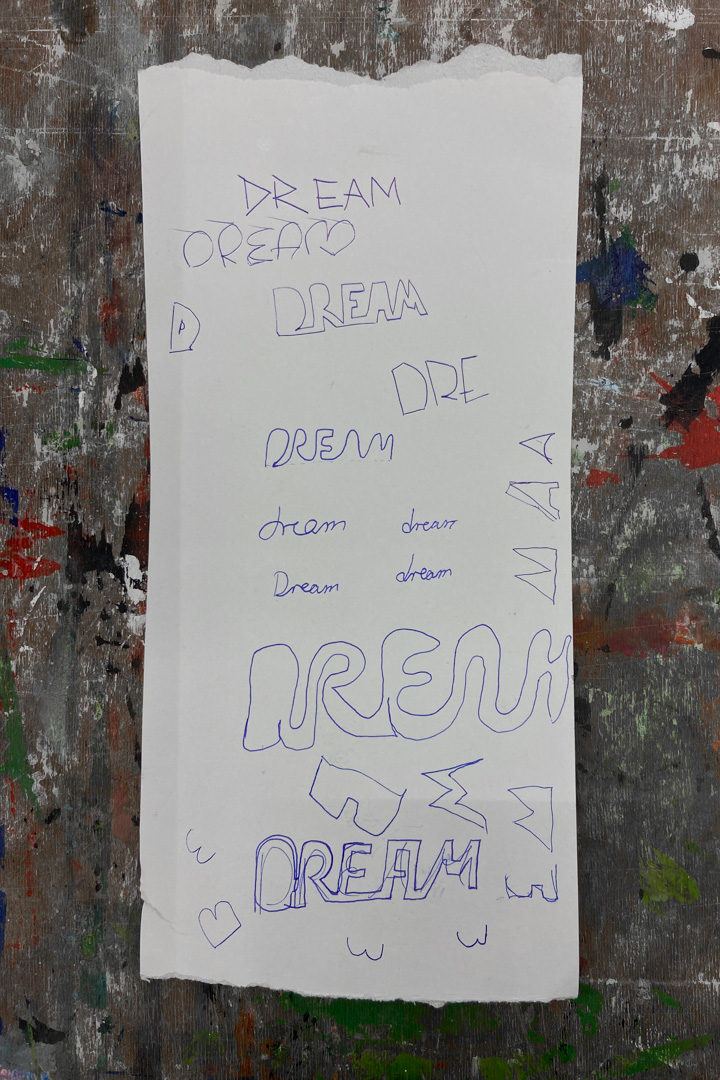 DREAM
DREAM
D DREAM
DRE
DREAM
A
dream dream
A
Dream dream
M
DREAM
R M
M
DREAM
E
B